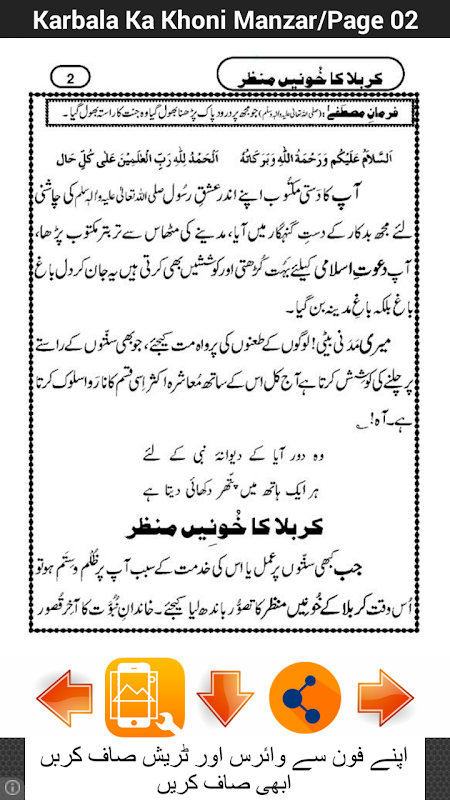 Karbala Ka Khoni Manzar/Page 02
2
کربلا کا خُونیں منظر
فرمانِ مصطفٰے: (صلی اللہ تعالیٰ علیہ والہٖ وسلم) جو مجھ پر درود پاک پڑھنا بھول گیا وہ جنت کا راستہ بھول گیا۔
اَلسَّلَامُ عَلَیْکُم وَرَحْمَۃُ اللّٰہِ وَبَرَکَاتُہٗ اَلْحَمْدُ لِلّٰہِ رَبِّ الْعٰلَمِیْنَ عَلٰی کُلِّ حَال
آپ کا دَستی مکتُوب اپنے اندر عشقِ رسُول صلی اللہ تعالیٰ علیہ والہٖ وسلم کی چاشنی
لئے مجھ بدکار کے دستِ گنہگار میں آیا، مدینے کی مٹھاس سے تر بتر مکتوب پڑھا،
آپ دعوتِ اسلامی کیلئے بہُت کُڑھتی اور کوششیں بھی کرتی ہیں یہ جان کر دل باغ
باغ بلکہ باغِ مدینہ بن گیا۔
میری مَدَنی بیٹی! لوگوں کے طعنوں کی پرواہ مت کیجئے، جو بھی سنّتوں کے راستے
پر چلنے کی کوشِش کرتا ہے آج کل اس کے ساتھ مُعاشرہ اکثر اِسی قسم کا نارَوا سلوک کرتا
ہے۔ آہ! ؎
وہ دور آیا کے دیوانۂ نبی کے لئے
ہر ایک ہاتھ میں پتّھر دکھائی دیتا ہے
کربلا کا خُونِیں منظر
جب کبھی سنّتوں پر عمل یا اس کی خدمت کے سبب آپ پر ظُلم و ستَم ہو تو
اُس وقت کربلا کے خُونِیں منظر کا تصوُّر باندھ لیا کیجئے۔ خاندانِ نبُوَّت کا آخِر قُصور
اپنے فون سے وائرس اور ٹریش صاف کریں
ابھی صاف کریں